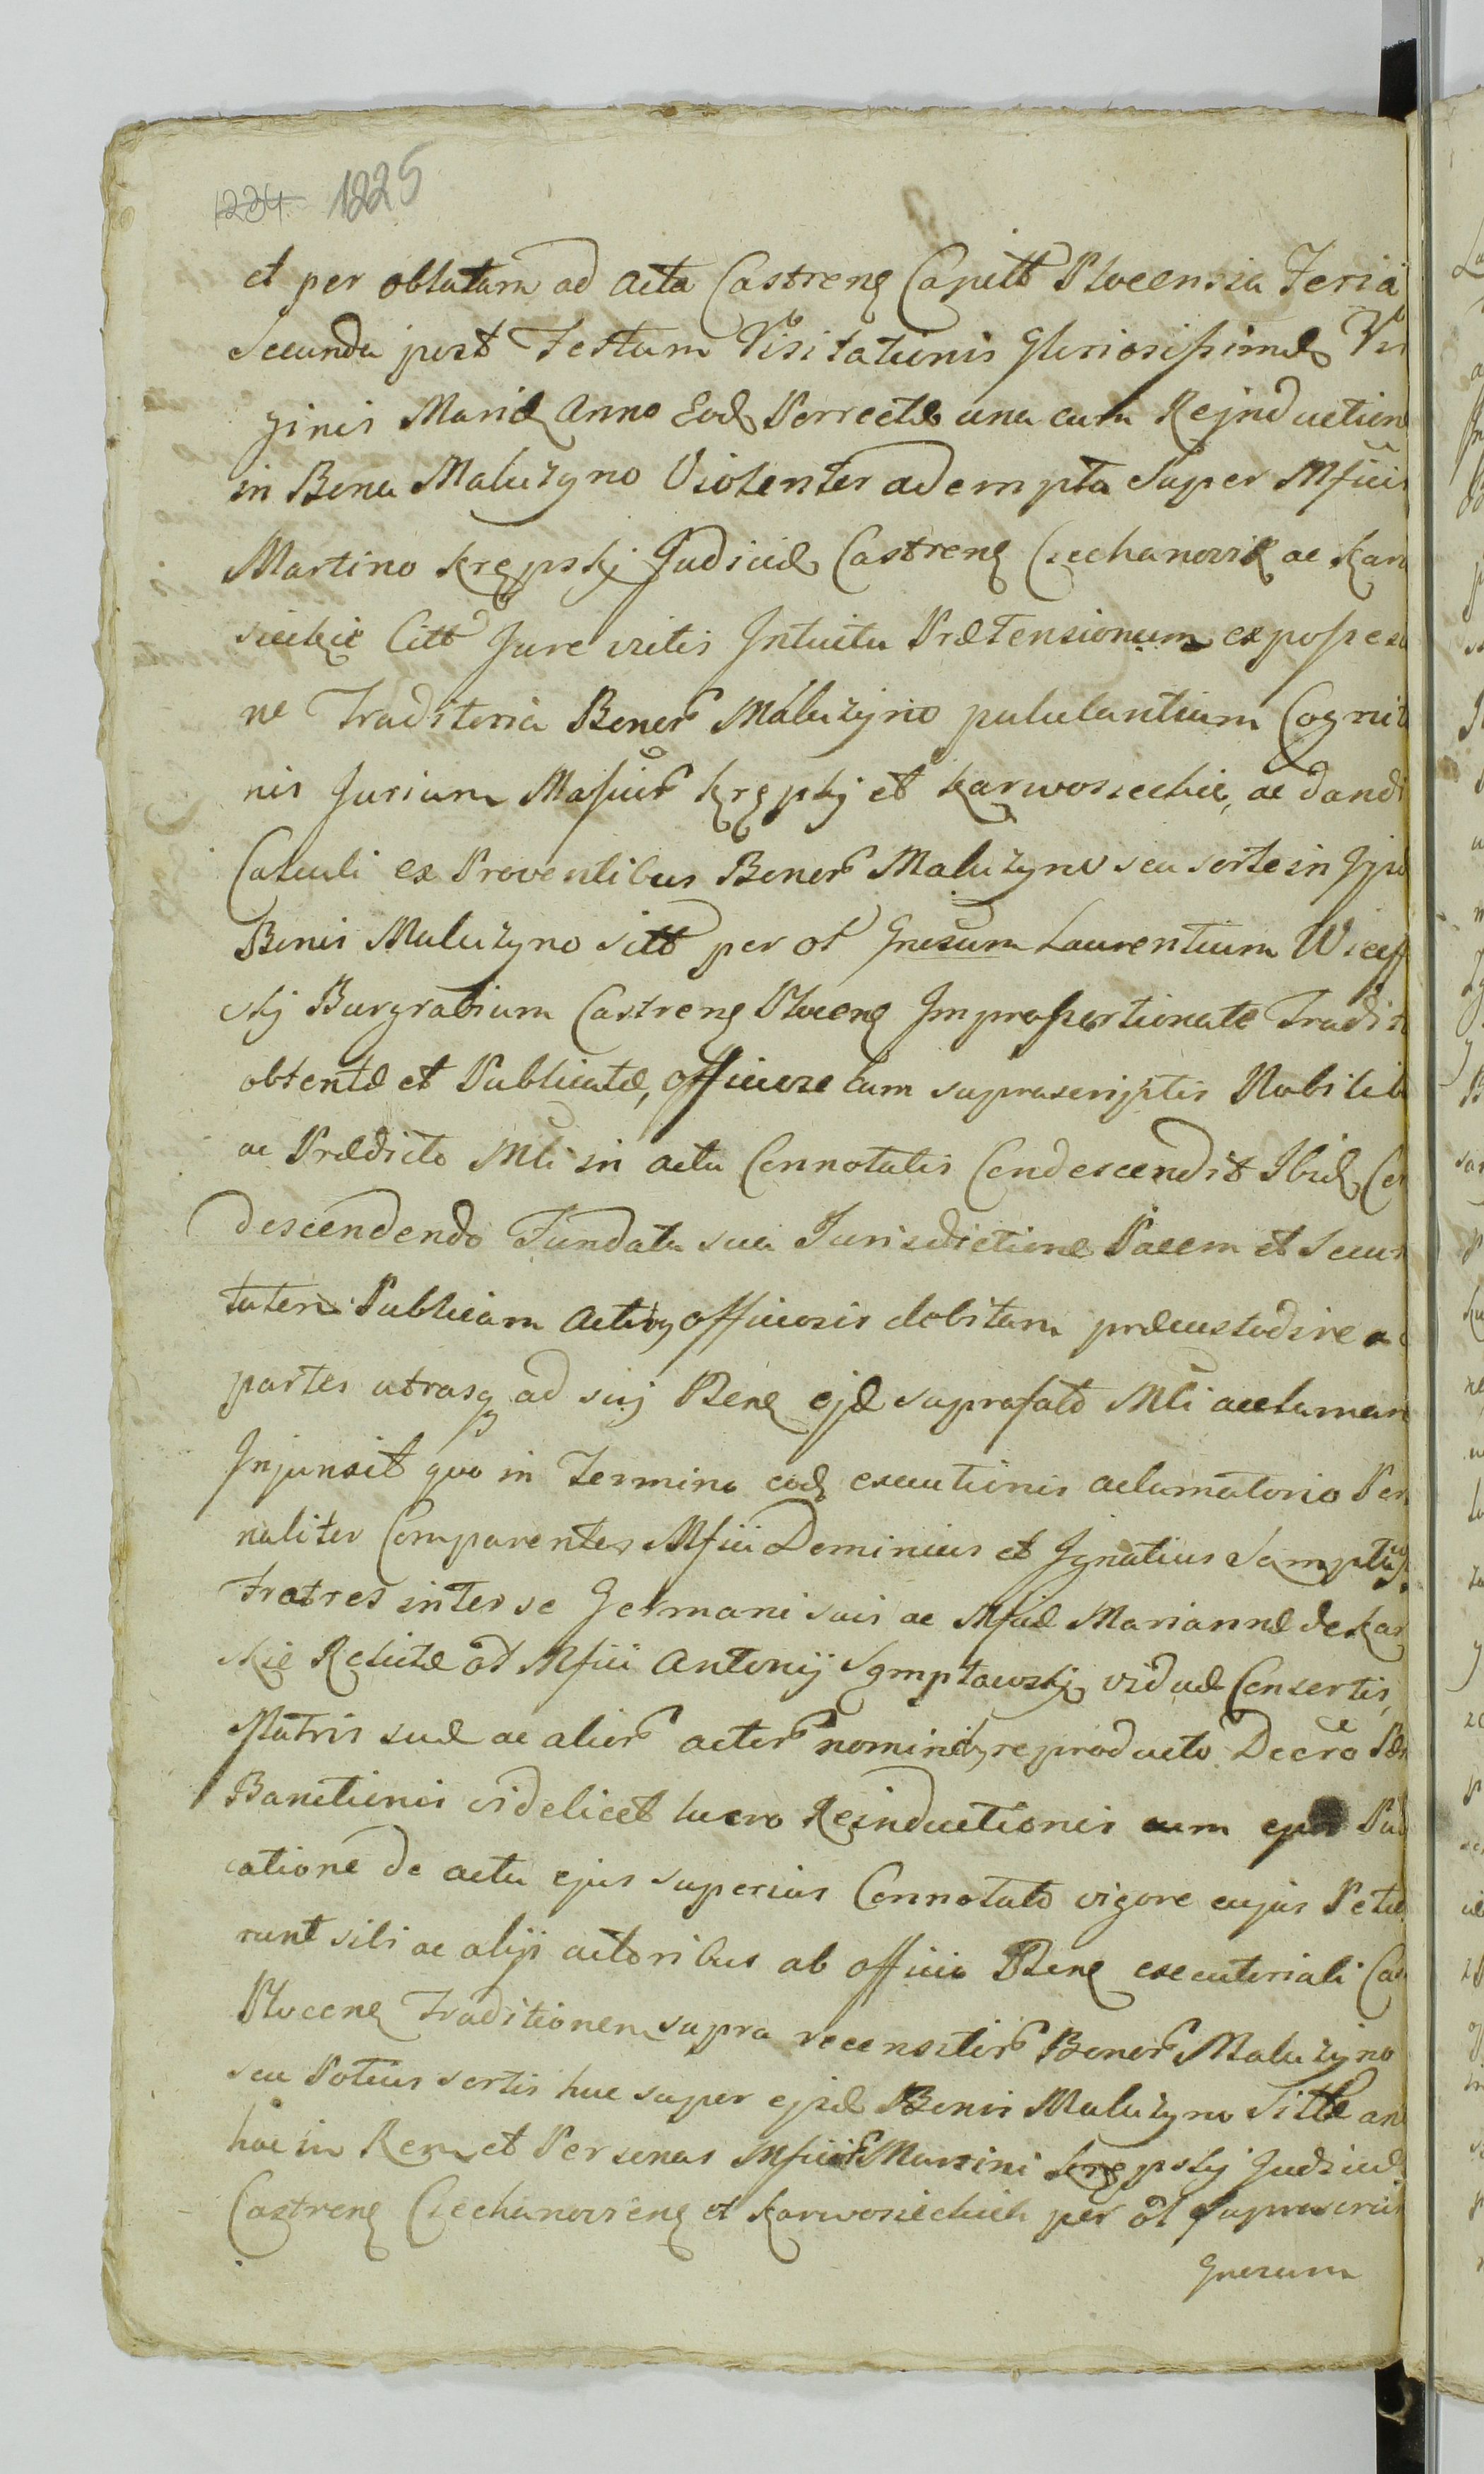 1224 1225
et per oblatam ad Acta Castreng Capitt Plocensia Feria
Secunda post Festum Visitationis Gloriosissimæ Vir
ginis Mariæ Anno Eod Porrectæ una cum Rejnduction
in Bona Malużyno Violenter adempta Super Mficis
Martino Krępskj Judice Castreng Ciechanovieg ac Karw
sieckie Citt Jure victis Intuitu Prætensionum ex possessi
ne Traditoria Bonor Malużyno pululantium Cognit
nis Jurium Maficor Krępskj et Karwosieckie, ac dandi
Calculi ex Proventibus Bonor Malużyno seu sorte in Jpsis
Bonis Malużyno sitt per ol Gnrosum Laurentium
skj Burgrabium Castreng Ploceng Improportionate Tradit
obtentæ et Publicatæ, officiose cum suprascriptis Nobilib
ac Prædicto Mli in actu Connotatis Condescendit Ibid Con
descendendo Fundata sua Jurisdictione Pacem et Securi
tatem Publicam Actibg officiosis debitam præcustodire a
partes utrasq ad sui Reng ejsd supra fato Mli acclamari
Injunxit quo in Termino eod executionis aclamatorio Per
naliter Comparentes Mfici Dominicus et Ignatius
Fratres inter se Germani suis ac Mficæ Mariannæ de Kar
skie Relictæ ol Mfici Antonij Sęmpławskj viduæ Consortis,
Matris suæ ac alior actor nominibg reproducto Decro
Banitionis videlicet lucro Reinductionis cum ejus Pub
catione de actu ejus superius Connotato vigore cujus Petie
runt sibi ac alijs actoribus ab officio Reng executoriali Cas
Ploceng Traditionem supra recensitor Bonor Malużyno
seu Potius sortis huc super ejsd Bonis Malużyno Sittæ an
hac in Rem et Personas Mficor Marcini Krępskj Judicis
Castreng Ciechanovieng et Karwosieckich per ol suprascrip
Gnrosum